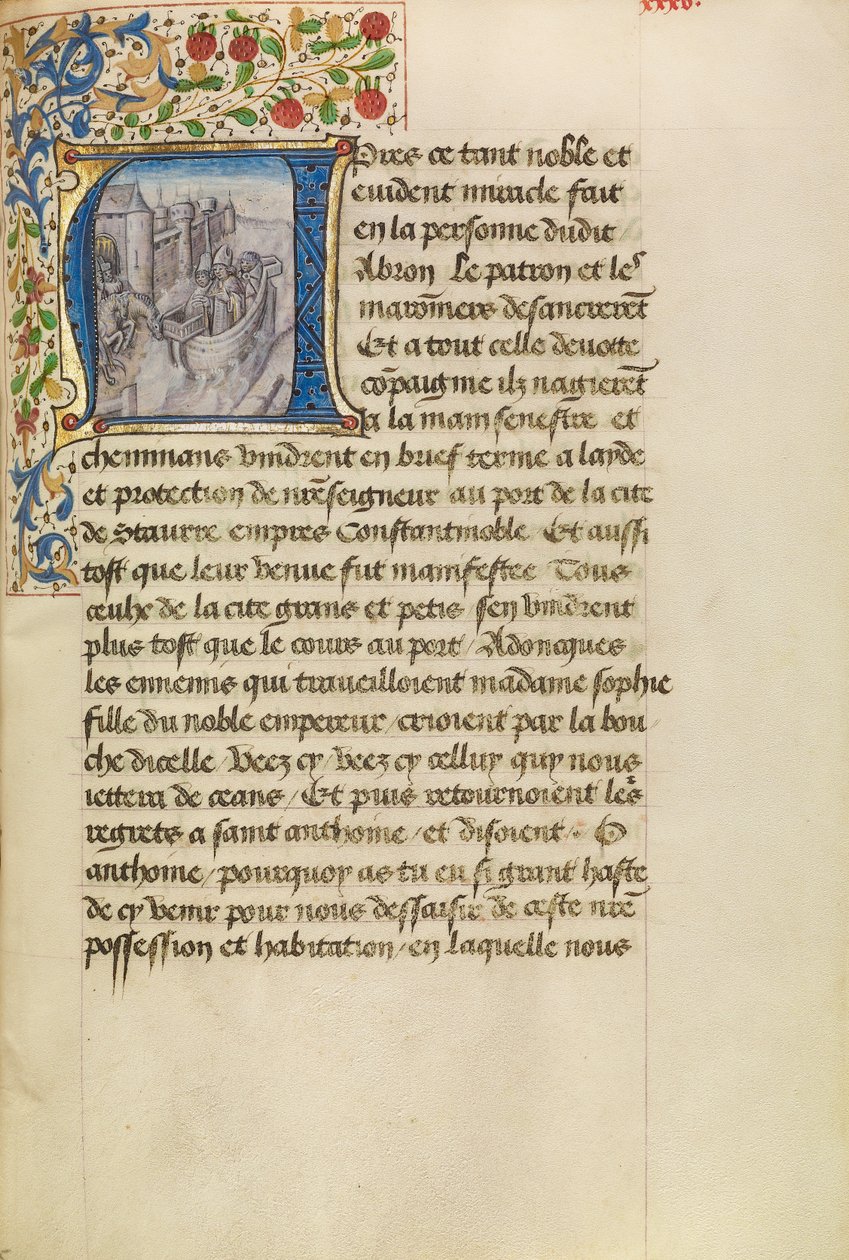 xxxv.
Apres ce tant noble et
euident miracle fait
en la personne dudit
Abron Le patron et les
maroñiers desancrerẽt
Et a tout celle deuote
cõpaignie ilz nagierẽt
a la main senestre et
cheminans vindrent en brief terme a layde
et protection de nrẽ seigneur au port de la cite
de Staurre empres Constantinoble Et aussi
tost que leur venue fut manifestee Tous
ceulx de la cite grans et petis / sen vindrent
plus tost que le cours au port / Adoncques
les ennemis qui traueilloient madame sophie
fille du noble empereur / crioient par la bou /
che dicelle / Veez cy / veez cy celluy quy nous
iettera de ceans / Et puis retournoient les
regretz a saint anthoine / et disoient /. O
anthoine / pourquoy as tu eu si grant haste
de cy venir pour nous dessaisir de ceste nrẽ
possession et habitation / en laquelle nous